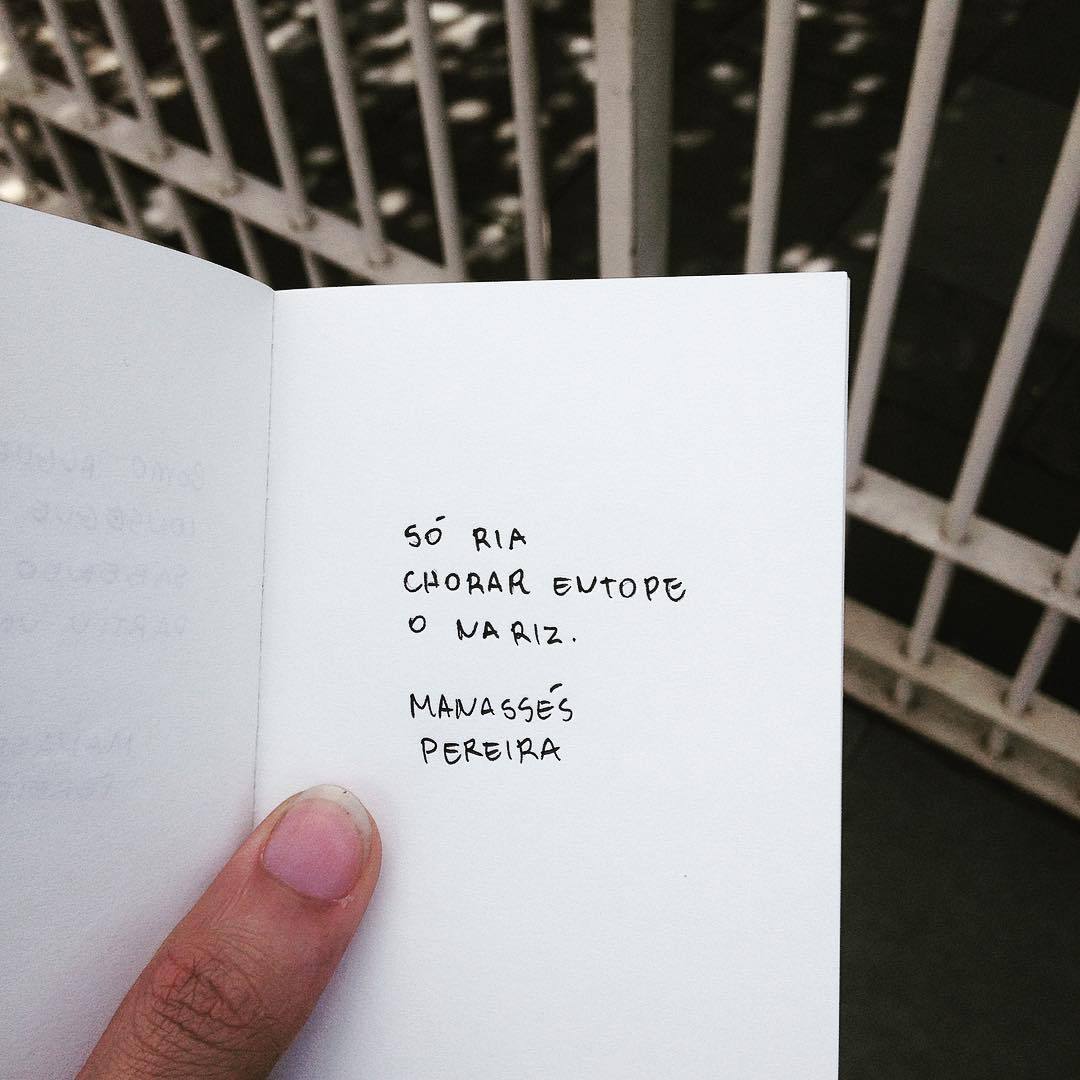 SÓ RIA
CHORAR ENTOPE
O NARIZ.
MANASSÉS
PEREIRA